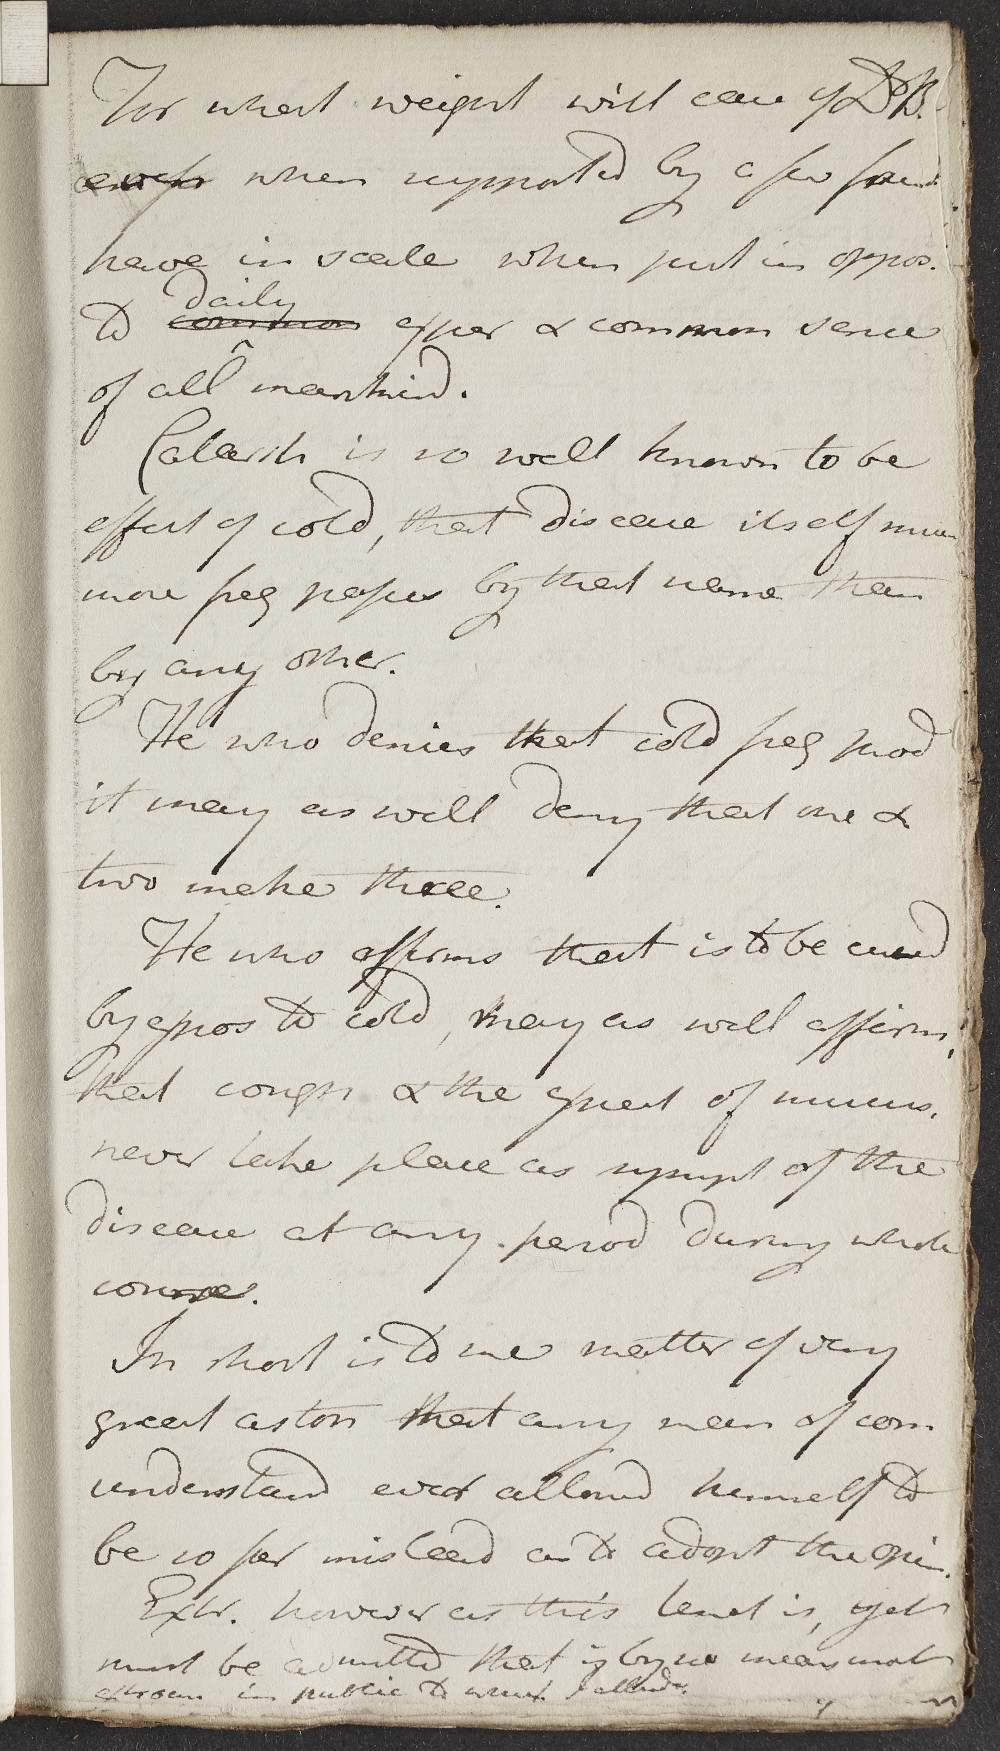 For what weight will case of Dr B.
when supported by a few
have in scale when put in oppos.
to common daily exper & common sence
of all mankind.
Catarrh is so well known to be
effect of cold, that disease itself
more freq passes by that name than
by any other.
He who denies that cold freq prod
it may as well deny that one &
two make three.
He who affirms that is to be cured
by expos to cold, may as well affirm,
that cough & the expect of mucus.
never take place as sympt of the
disease at any period during whole
course.
In short is to me matter of very
great aston that any man of com
understand ever allowed himself to
be so far mislead as to adopt the opin.
Extr. however as this tenet is, yet
must be admitted that is by no means most
in public to which I allude.